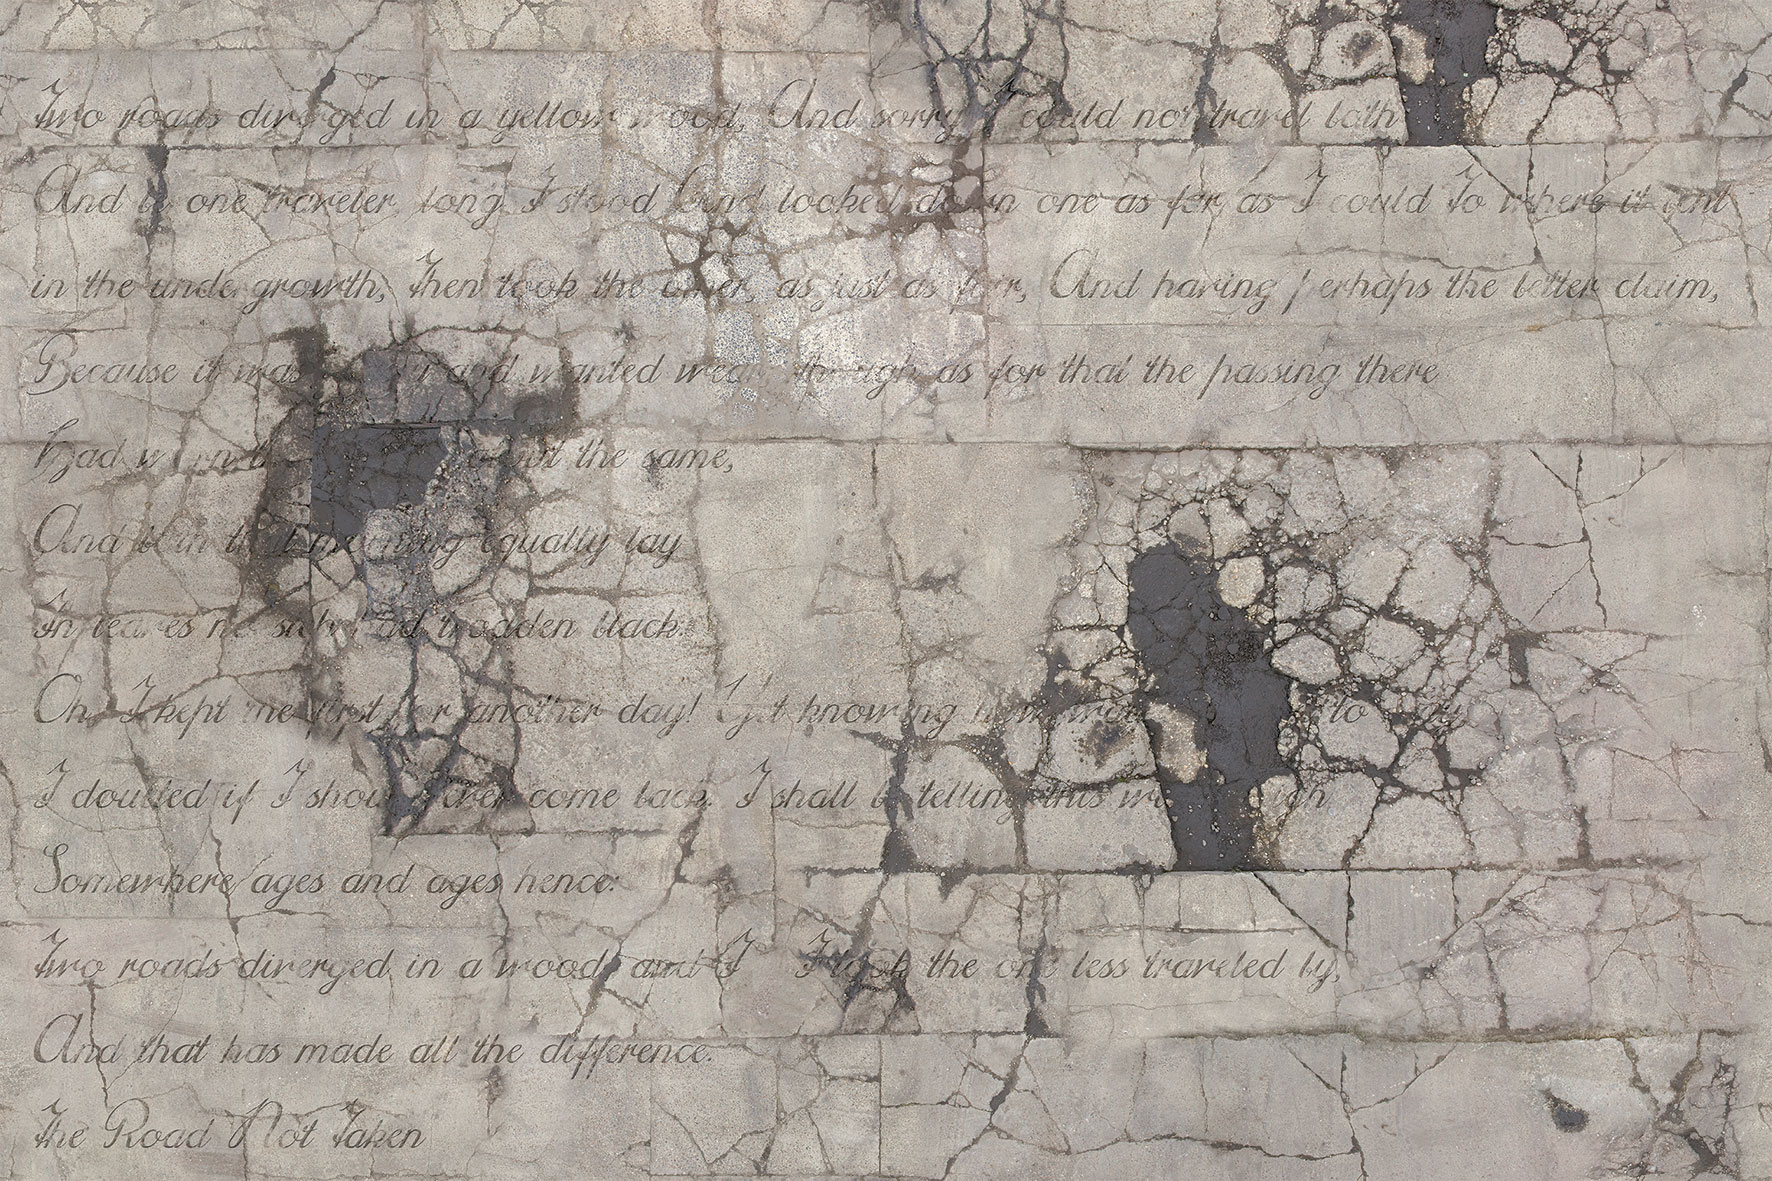 Two roads diverged in a yellow wood, And sorry I could not travel both
And be one traveler, long I stood And looked down one as far as I could To where it bent
in the undergrowth; Then took the other, as just as fair, And having perhaps the better claim,
Because it was and wanted wear, though as for that the passing there
Had worn about the same,
And both that morning equally lay
In leaves no had trodden black.
Oh, I kept the first for another day! Yet knowing how to
I doubted if I should ever come back. I shall be telling this sigh
Somewhere ages and ages hence:
Two roads diverged in a wood, and I I took the one less traveled by,
And that has made all the difference.
The Road Not Taken